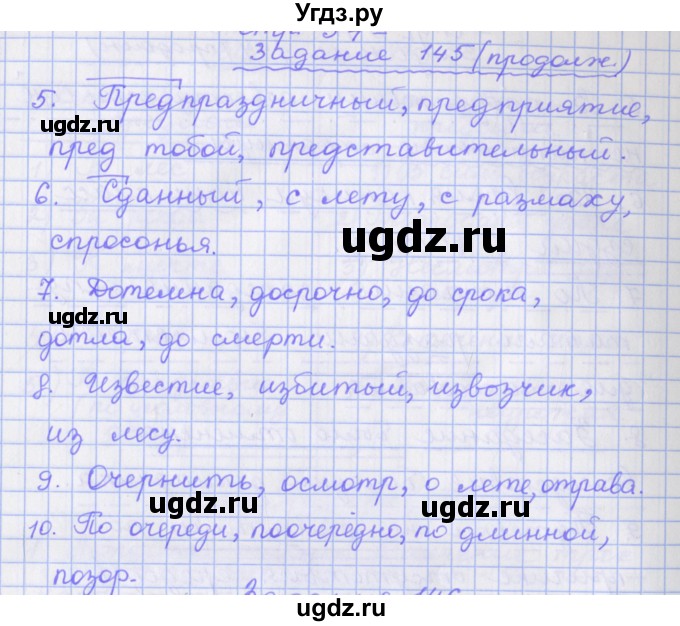 Угдз.ру
Задание 145 (продолж)
5. Предпраздничный, предприятие,
ugdz.ru
пред тобой, представительный.
6. Сданный, с лету, с размаху,
ugdz.ru
спросонья.
7. Дотемна, досрочно, до срока,
ugdz.ru
дотла, до смерти.
8. Известие, избитый, извозчик,
из лесу.
9. Очернить, осмотр, о лете, отрава.
ugdz.ru
ugdz.ru
10. По очереди, поочерёдно, по длинной,
позор.
ugdz.ru